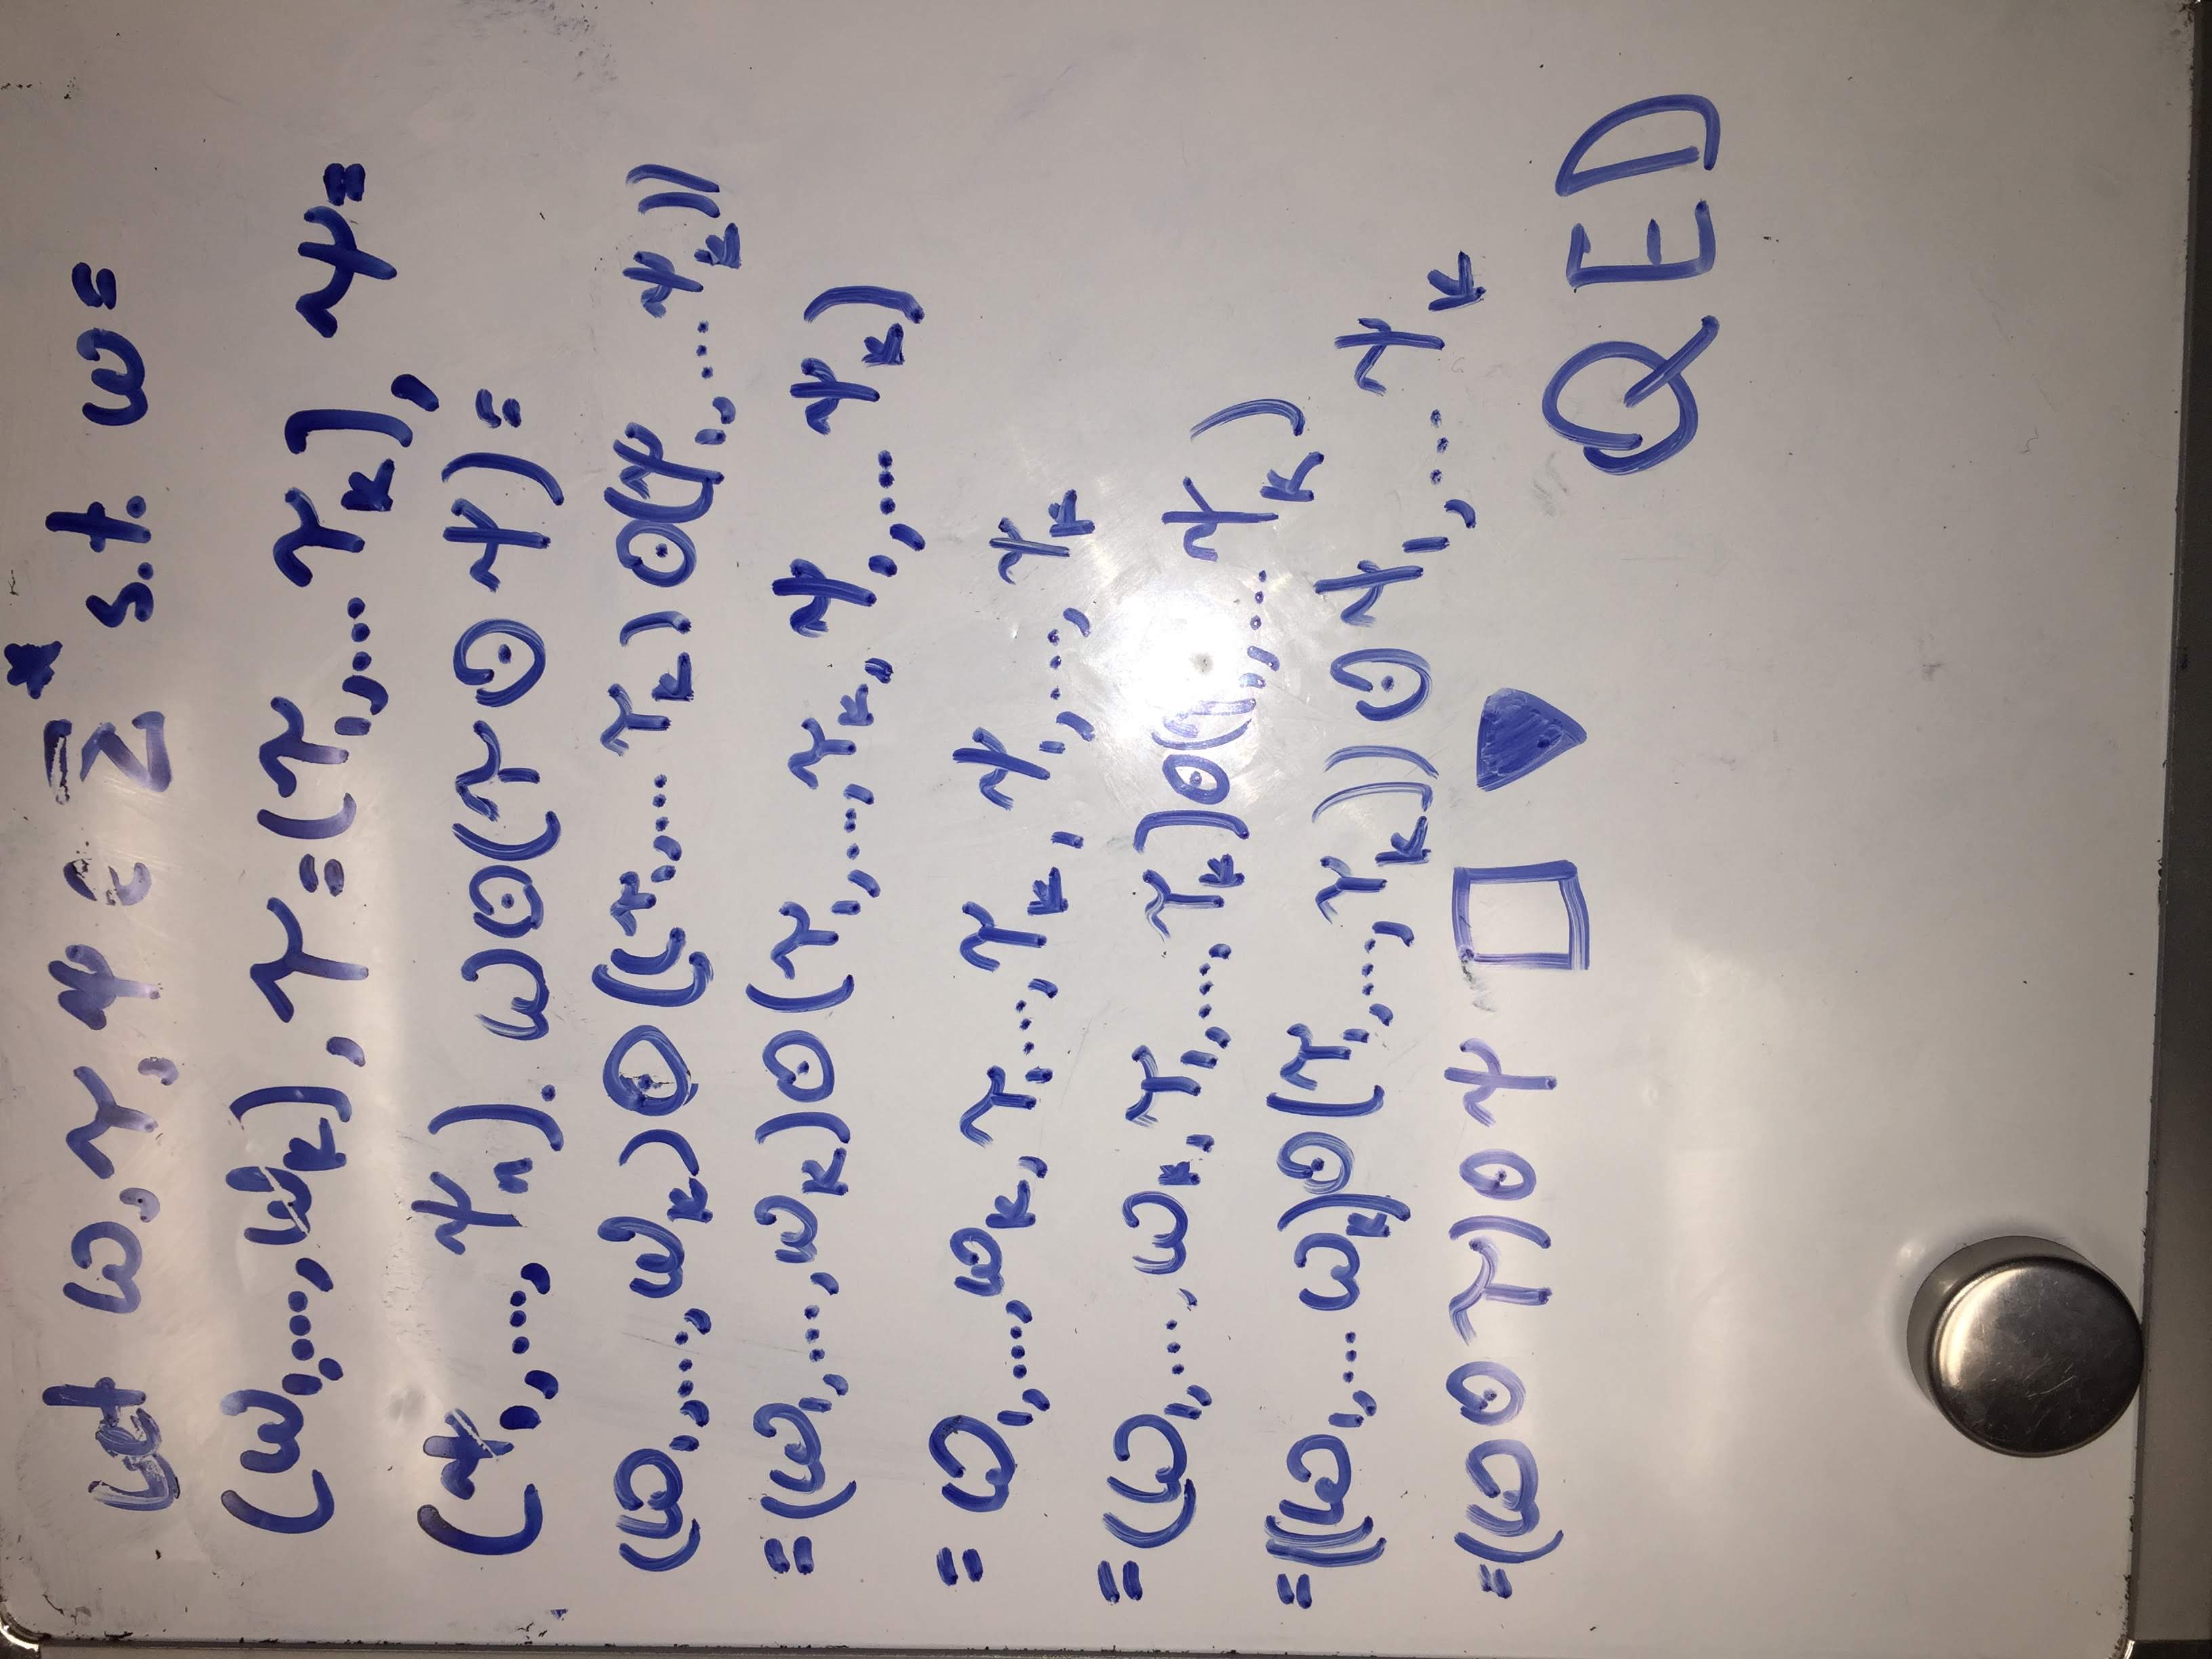 Let ω, τ, ψ ∈ Σ* s.t. ω=
(ω₁,...,ωₖ), τ=(τ₁,... τₖ), ψ=
(ψ₁,...,ψₙ). ω⊙(τ⊙ψ)=
(ω₁,...,ωₖ)⊙((τ₁,... τₖ)⊙(ψ₁,... ψₖ))
=(ω₁,...,ωₖ)⊙(τ₁,...,τₖ, ψ₁,... ψₖ)
= ω₁,...,ωₖ, τ₁,...,τₖ, ψ₁,..., ψₖ
=(ω₁,..., ωₖ, τ₁,..., τₖ)⊙(ψ₁,... ψₖ)
=((ω₁,... ωₖ)⊙(τ₁,...,τₖ))⊙ψ₁,... ψₖ
=(ω⊙τ)⊙ψ □ ▼
QED